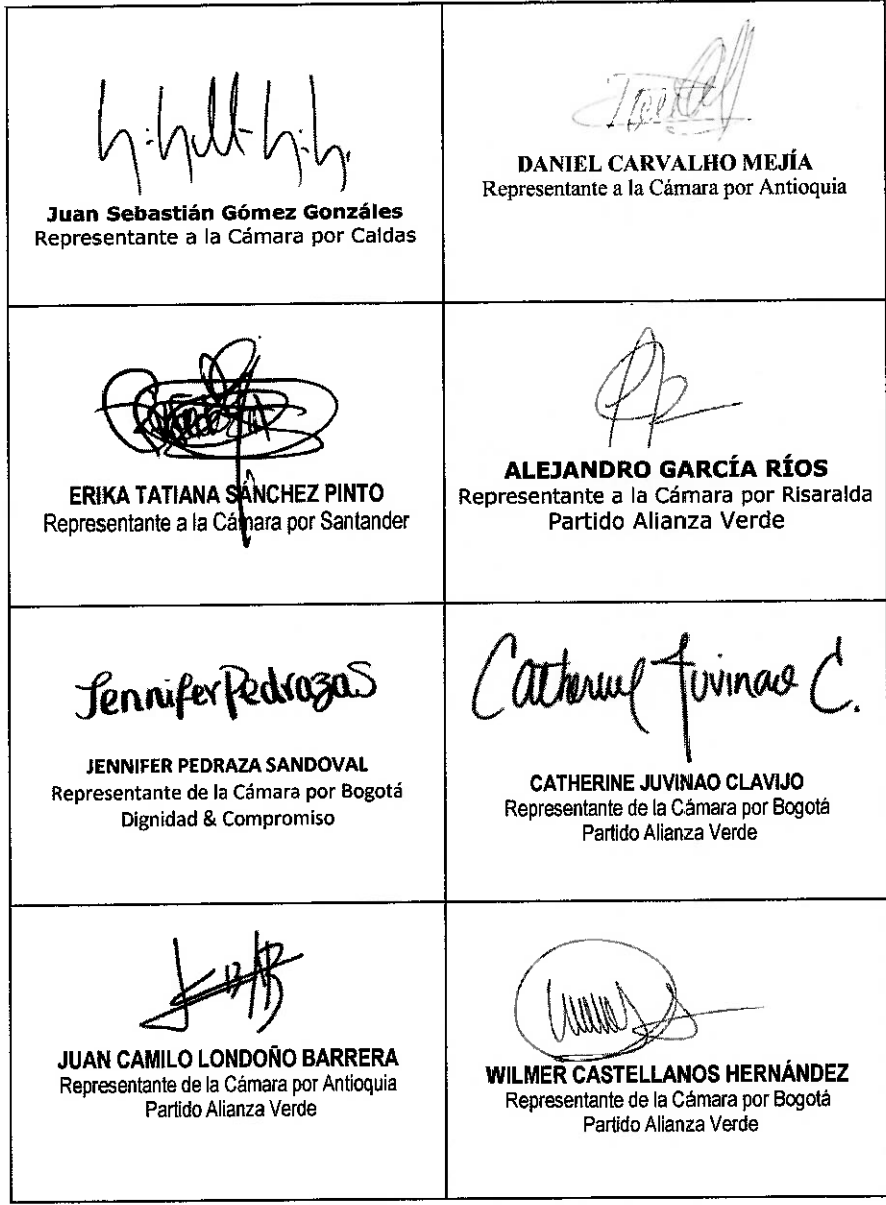 Juan Sebastián Gómez Gonzáles
Representante a la Cámara por Caldas
DANIEL CARVALHO MEJÍA
Representante a la Cámara por Antioquia
ERIKA TATIANA SÁNCHEZ PINTO
Representante a la Cámara por Santander
ALEJANDRO GARCÍA RÍOS
Representante a la Cámara por Risaralda
Partido Alianza Verde
Jennifer Pedraza S
JENNIFER PEDRAZA SANDOVAL
Representante de la Cámara por Bogotá
Dignidad & Compromiso
Catherine Juvinao C.
CATHERINE JUVINAO CLAVIJO
Representante de la Cámara por Bogotá
Partido Alianza Verde
JUAN CAMILO LONDOÑO BARRERA
Representante de la Cámara por Antioquia
Partido Alianza Verde
WILMER CASTELLANOS HERNÁNDEZ
Representante de la Cámara por Bogotá
Partido Alianza Verde